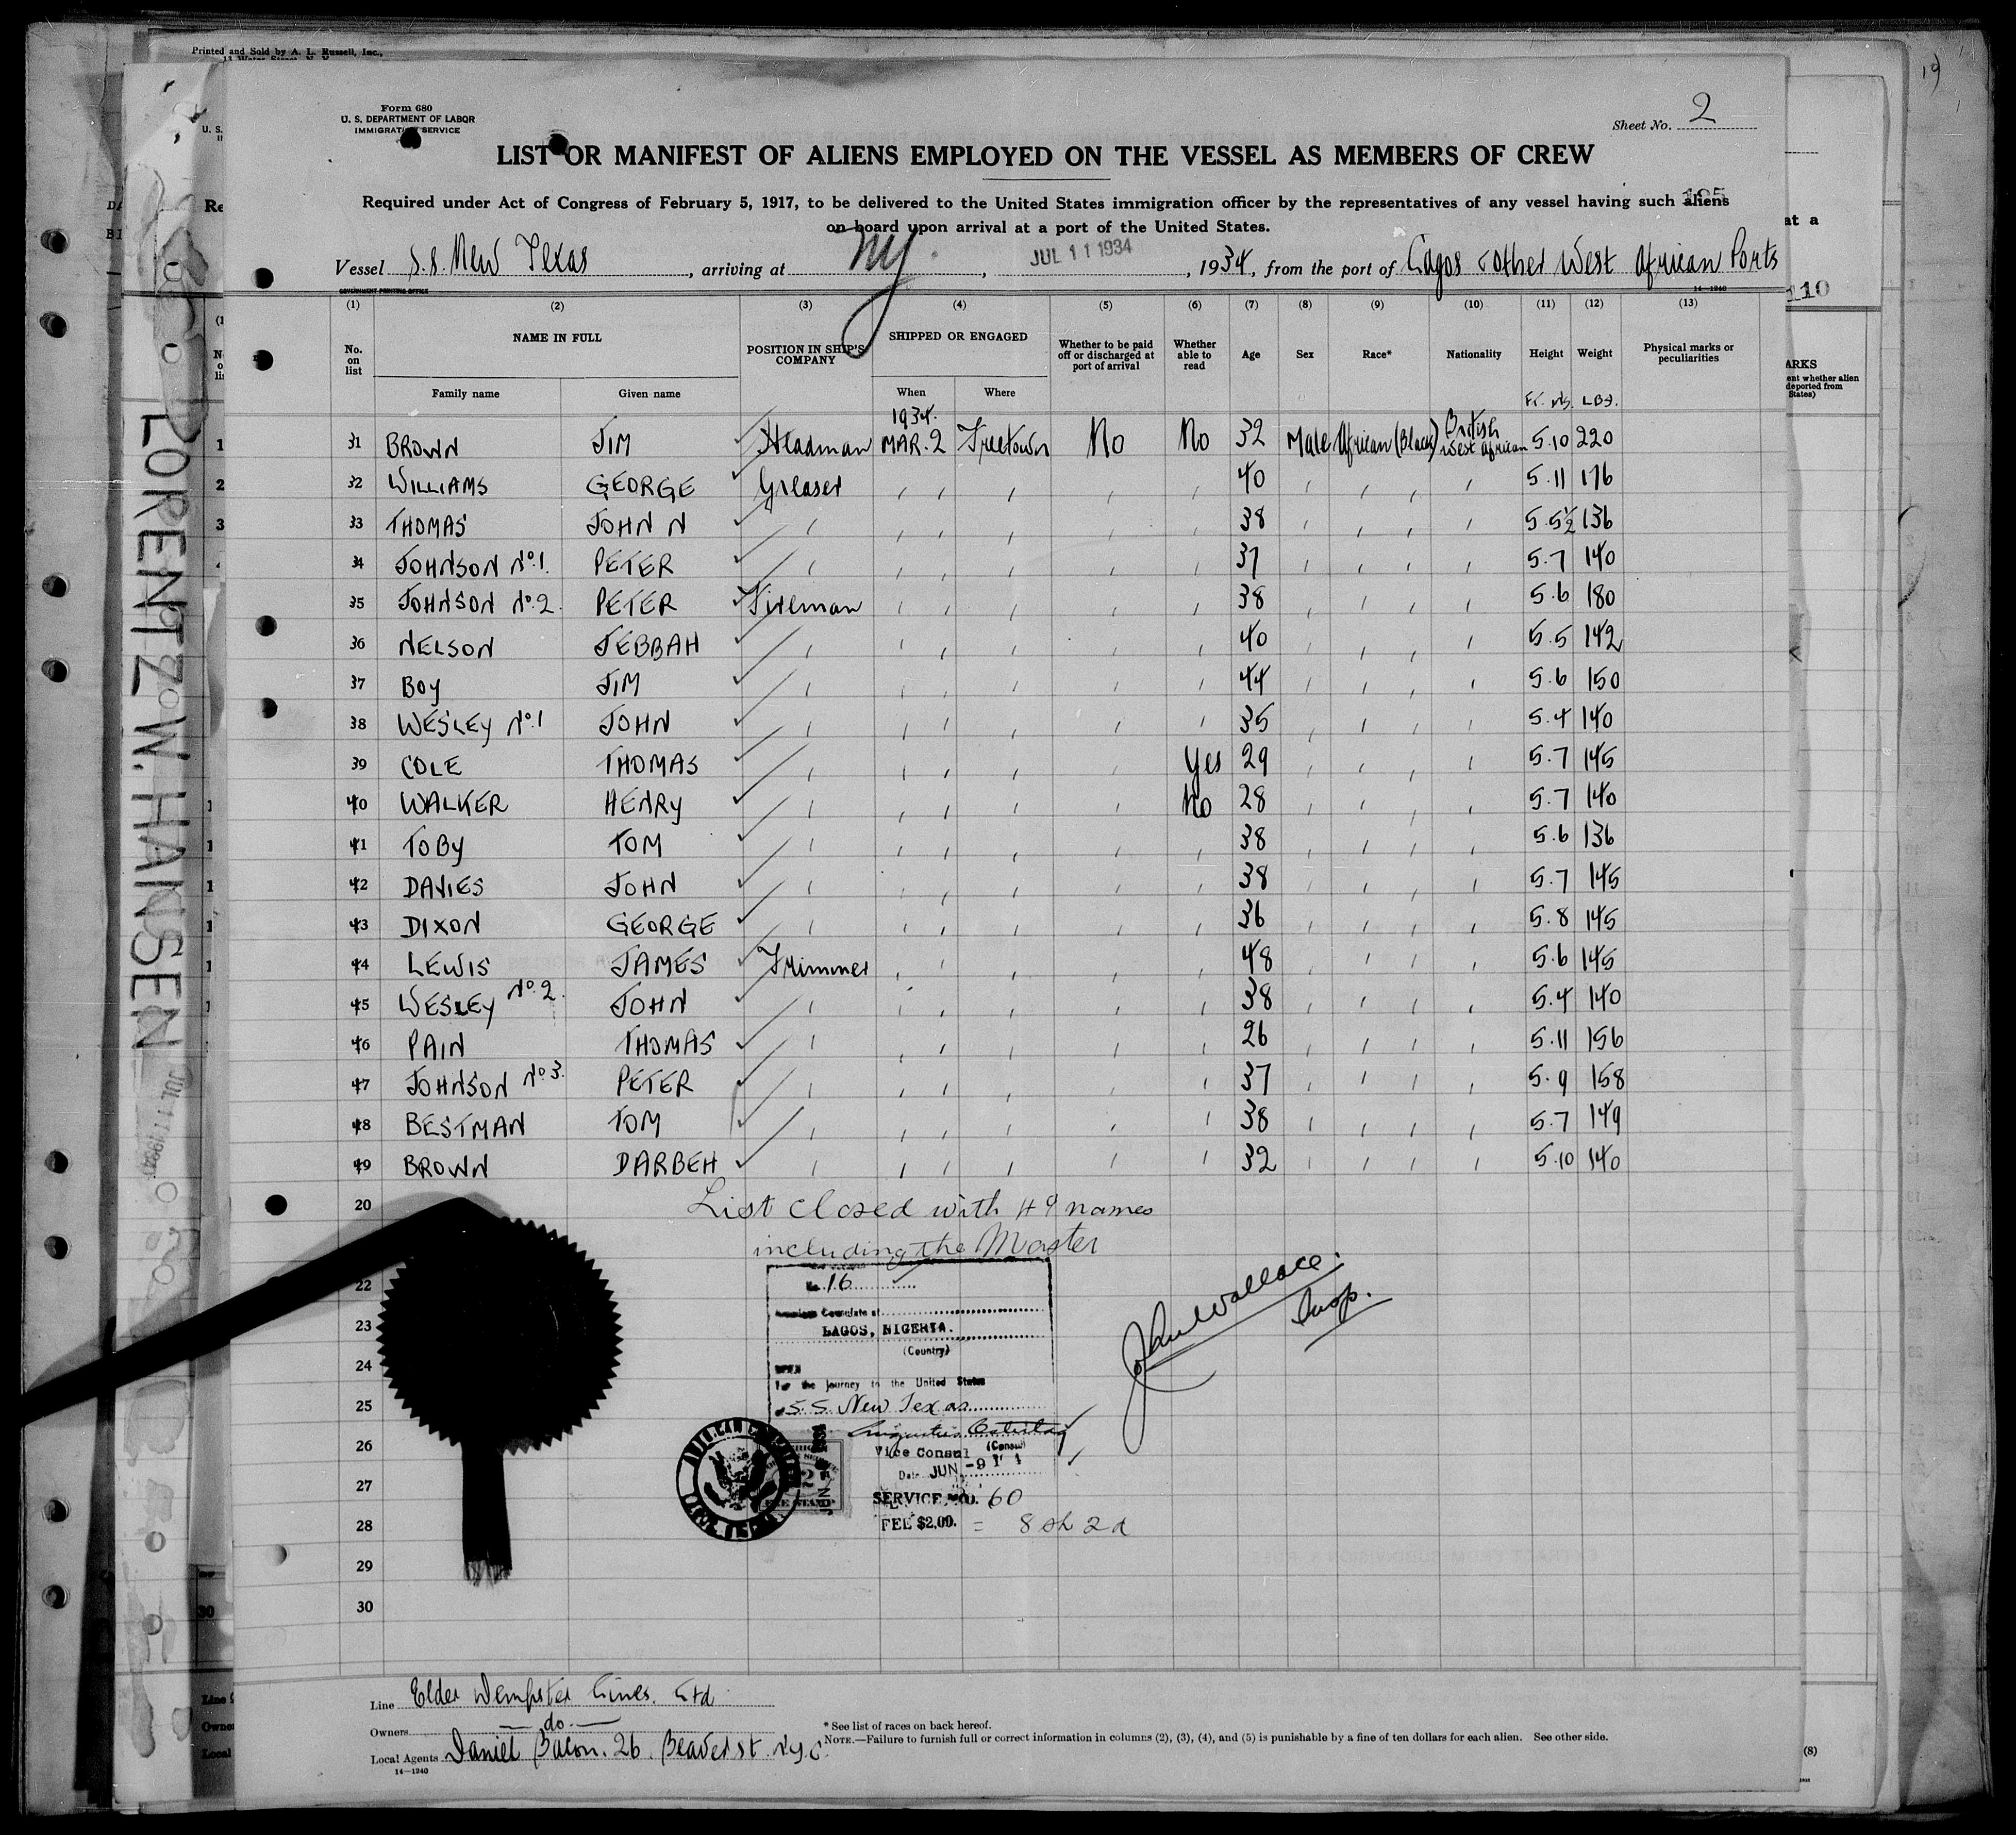 Printed and Sold by A. L. Russell, Inc.,
Form 680
U. S. DEPARTMENT OF LABOR
IMMIGRATION SERVICE
Sheet No. 2
LIST OR MANIFEST OF ALIENS EMPLOYED ON THE VESSEL AS MEMBERS OF CREW
Required under Act of Congress of February 5, 1917, to be delivered to the United States immigration officer by the representatives of any vessel having such aliens
on board upon arrival at a port of the United States.
Vessel S.S. New Texas, arriving at NY, JUL 11 1934, 1934, from the port of Lagos & other West African Ports
GOVERNMENT PRINTING OFFICE 14—1240
(1) (2) (3) (4) (5) (6) (7) (8) (9) (10) (11) (12) (13)
No. on list NAME IN FULL Family name Given name POSITION IN SHIP'S COMPANY SHIPPED OR ENGAGED When Where Whether to be paid off or discharged at port of arrival Whether able to read Age Sex Race* Nationality Height Weight Physical marks or peculiarities
1934. Ft. Ins. LBS.
31 BROWN JIM Headman MAR. 2 Freetown No No 32 Male African (Black) British West African 5.10 220
32 WILLIAMS GEORGE Greaser " " " " " 40 " " " " 5.11 176
33 THOMAS JOHN N " " " " " " 38 " " " " 5.5½ 136
34 JOHNSON No.1. PETER " " " " " " 37 " " " " 5.7 140
35 JOHNSON No.2. PETER Fireman " " " " " 38 " " " " 5.6 180
36 NELSON JEBBAH " " " " " " 40 " " " " 5.5 142
37 BOY JIM " " " " " " 44 " " " " 5.6 150
38 WESLEY No.1 JOHN " " " " " " 35 " " " " 5.4 140
39 COLE THOMAS " " " " " Yes 29 " " " " 5.7 145
40 WALKER HENRY " " " " " No 28 " " " " 5.7 140
41 TOBY TOM " " " " " " 38 " " " " 5.6 136
42 DAVIES JOHN " " " " " " 38 " " " " 5.7 145
43 DIXON GEORGE " " " " " " 36 " " " " 5.8 145
44 LEWIS JAMES Trimmer " " " " " 48 " " " " 5.6 145
45 WESLEY No.2. JOHN " " " " " " 38 " " " " 5.4 140
46 PAIN THOMAS " " " " " " 26 " " " " 5.11 156
47 JOHNSON No 3. PETER " " " " " " 37 " " " " 5.9 158
48 BESTMAN TOM " " " " " " 38 " " " " 5.7 149
49 BROWN DARBEH " " " " " " 32 " " " " 5.10 140
20 List closed with 49 names
including the Master
22 No. 16
American Consulate at
23 LAGOS, NIGERIA.
(Country)
24
SEEN
For the journey to the United States
25 S.S. New Texas
John Wallace
Insp.
26 Vice Consul (Consul)
Date JUN -9
27 SERVICE NO. 60
28 FEE $2.00. = 8 sh 2 d
29
30
Line Elder Dempster Lines. Ltd
Owners — do —
Local Agents Daniel Bacon. 26. Beaver st. N.Y.C.
14—1240
* See list of races on back hereof.
NOTE.—Failure to furnish full or correct information in columns (2), (3), (4), and (5) is punishable by a fine of ten dollars for each alien. See other side.
LORENTZ W. HANSEN
JUL 11 1934